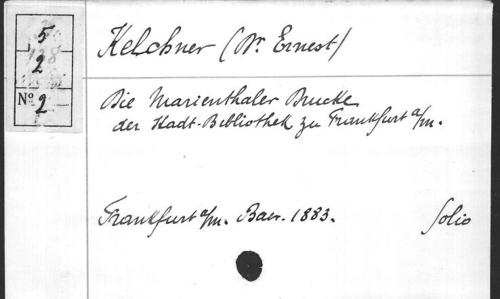 5
2
Nº 2
Kelchner (Dr. Ernest)
Die Marienthaler Drucke
der Stadt-Bibliothek zu Frankfurt a/m.
Frankfurt a/m. Baer. 1883. folio